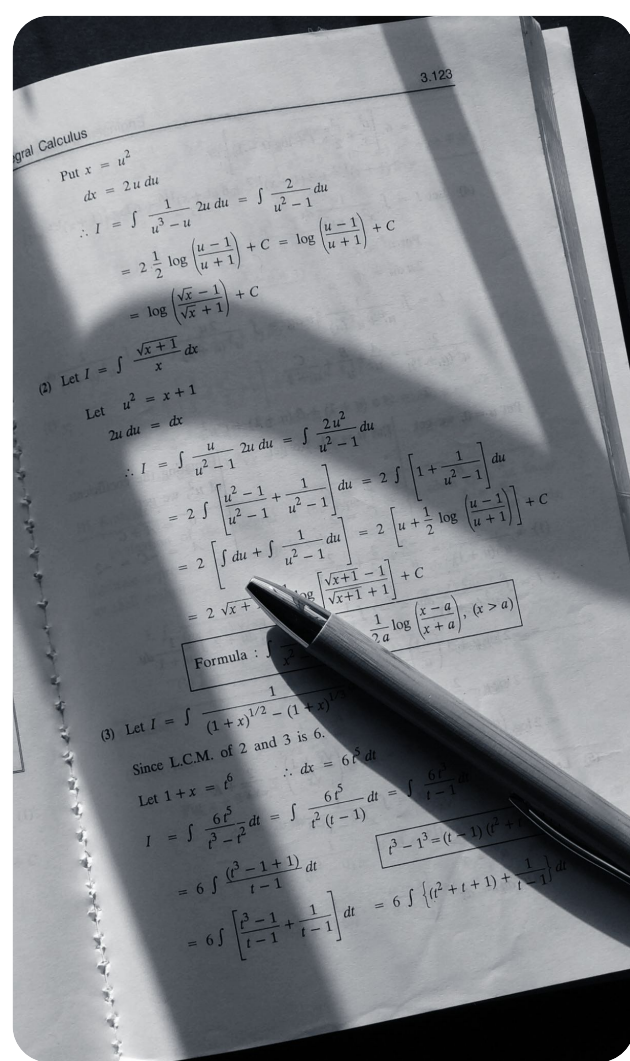 3.123
gral Calculus
Put x = u²
dx = 2u du
∴ I = ∫ 1/(u³ − u) 2u du = ∫ 2/(u² − 1) du
= 2 1/2 log ((u − 1)/(u + 1)) + C = log ((u − 1)/(u + 1)) + C
= log ((√x − 1)/(√x + 1)) + C
(2) Let I = ∫ √(x + 1)/x dx
Let u² = x + 1
2u du = dx
∴ I = ∫ u/(u² − 1) 2u du = ∫ 2u²/(u² − 1) du
= 2 ∫ [(u² − 1)/(u² − 1) + 1/(u² − 1)] du = 2 ∫ [1 + 1/(u² − 1)] du
= 2 [∫ du + ∫ 1/(u² − 1) du] = 2 [u + 1/2 log ((u − 1)/(u + 1))] + C
= 2 √x + log [(√(x+1) − 1)/(√(x+1) + 1)] + C
Formula : ∫ 1/2a log ((x − a)/(x + a)), (x > a)
(3) Let I = ∫ 1/((1 + x)^1/2 − (1 + x)^1/3
Since L.C.M. of 2 and 3 is 6.
Let 1 + x = t⁶ ∴ dx = 6t⁵ dt
I = ∫ 6t⁵/(t³ − t²) dt = ∫ 6t⁵/(t² (t − 1)) dt = ∫ 6t³/(t − 1) dt
= 6 ∫ (t³ − 1 + 1)/(t − 1) dt
t³ − 1³ = (t − 1) (t² + t
= 6 ∫ [(t³ − 1)/(t − 1) + 1/(t − 1)] dt = 6 ∫ {(t² + t + 1) + 1/(t − 1)} dt